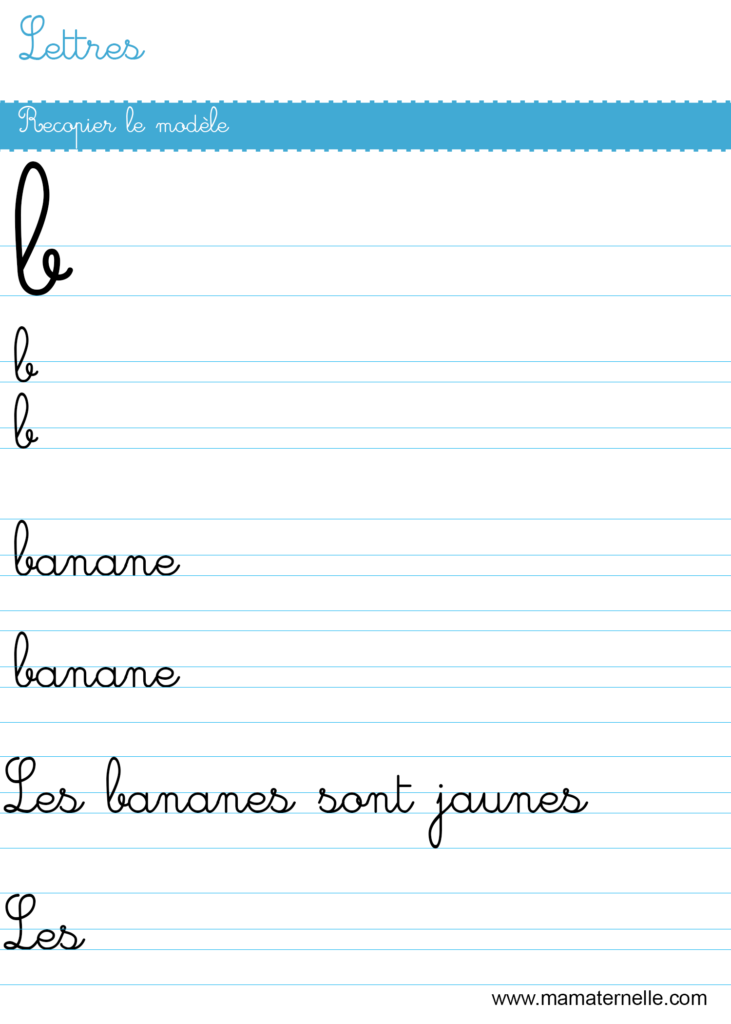 Lettres
Recopier le modèle
b
b
b
banane
banane
Les bananes sont jaunes
Les
www.mamaternelle.com